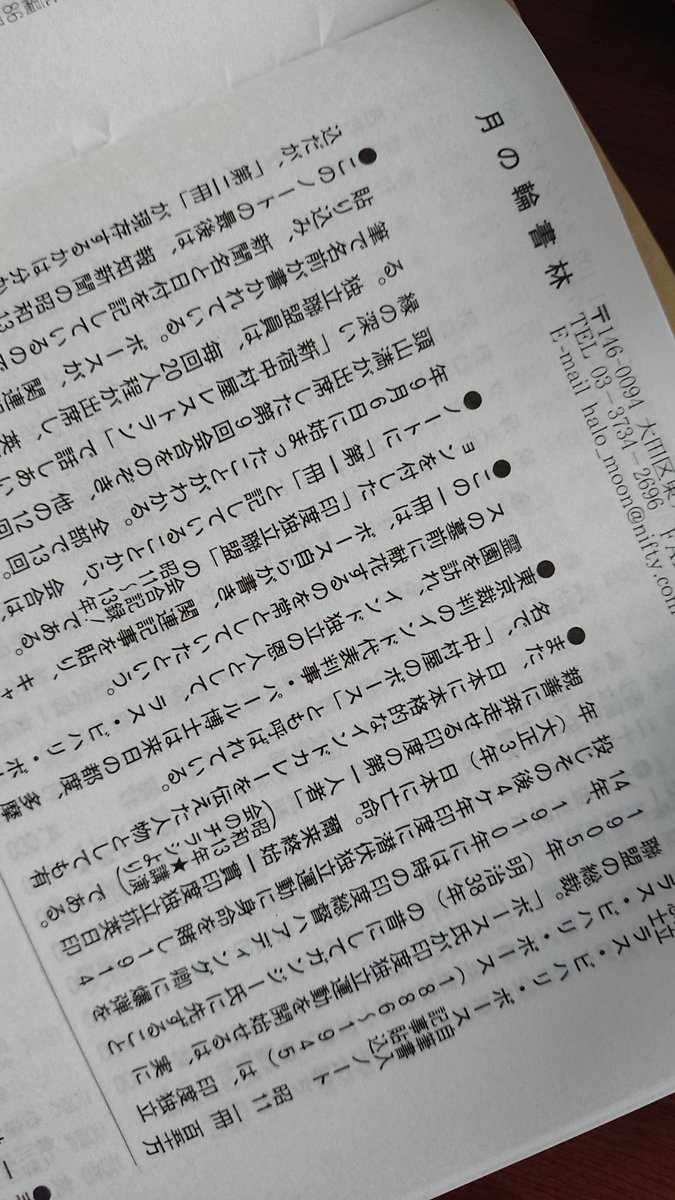 月の輪書林
〒146-0094 大田区東
TEL 03-3734-2696 FA
E-mail halo_moon@nifty.com
ラス・ビハリ・ボース 自筆書入 記事貼込 ノート 昭11 一冊 百五十万
ラス・ビハリ・ボース(1886〜1945)は、印度独立
聯盟の総裁。「ボース氏が印度独立運動を開始せるは、実に
1905年(明治38年)の昔にしてガンジー氏に先ずること
14年、1910年には時の印度総督ハアディング卿に爆弾を
投じその後4ケ年印度に潜伏独立運動に身命を賭し1914
年(大正3年)日本に亡命。爾来終始一貫印度独立抗英日印
親善に奔走せる印度の第一人者」(昭和13年講演会のチラシより★)である。
●また、日本に本格的なインドカレーを伝えた人物としても有
名で、「中村屋のボース」とも呼ばれている。
●東京裁判のインド代表判事・パール博士は来日の都度、多摩
霊園を訪れ、インド独立の恩人として、ラス・ビハリ・ボー
スの墓前に献花するのを常としていたという。
●この一冊は、ボース自らが書き、関連記事を貼り、キャ
ョンを付した「印度独立聯盟」の会合記録/昭11〜13年である。
●ノートに「第一冊」と記していることから、会合は、
年9月6日に始まったことがわかる。全部で13回。
頭山満が出席した第9回会合をのぞき、他の12回
縁の深い「新宿中村屋レストラン」で話しあい
る。独立聯盟員は、毎回20人程が出席し、英
筆で名前が書かれている。ボースが、関連
貼り込み、新聞名と日付を記しているので
●このノートの最後は、報知新聞の昭和13
込だが、「第二冊」が現存するかは分か